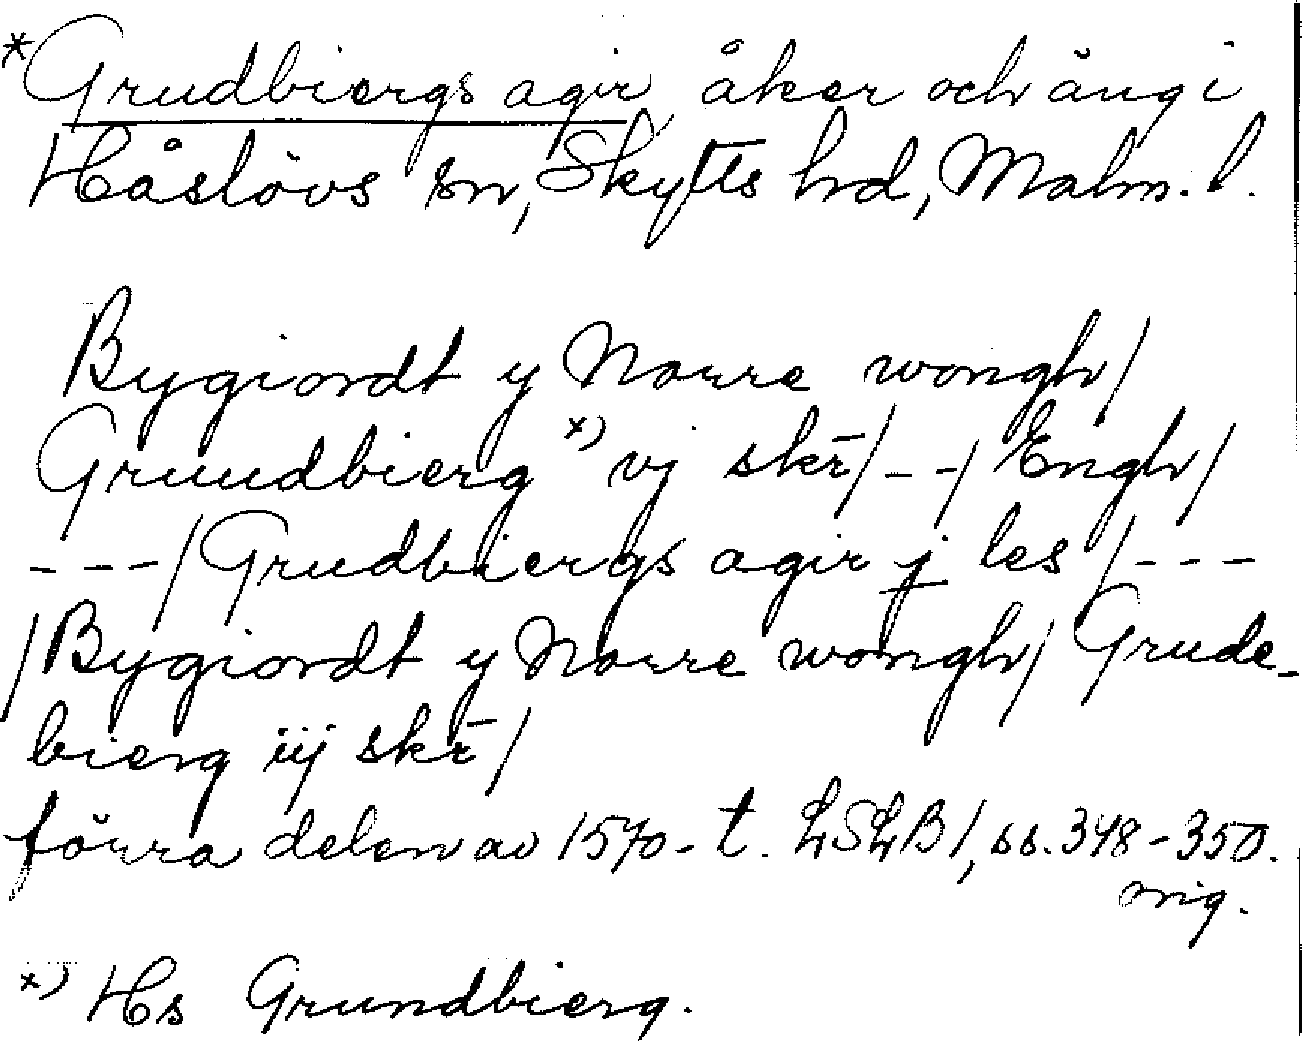 *Grudbiergs agir, åker och äng i
Håslövs sn, Skytts hd, Malm. l.
Bygiordt y Norre wongh/
Gruudbierg x) vj skr̄/ - - / Engh/
- - - / Grudbiergs agir j les / - - -
/Bygiordt y Norre wongh/ Grude-
bierg iij skr̄/
förra delen av 1570-t. LSLB 1, ss. 348-350.
orig.
x) Hs Grundbierg.